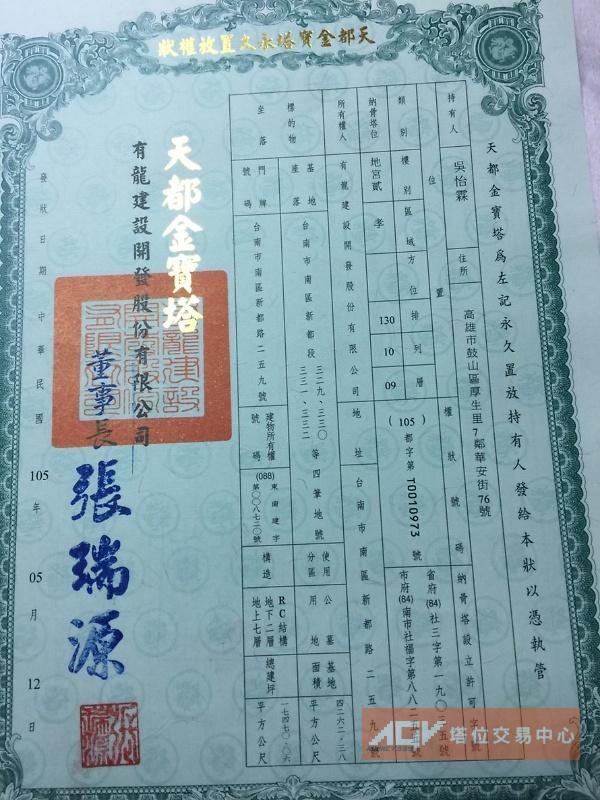 天都金寶塔永久置放權狀
天都金寶塔為左記永久置放持有人發給本狀以憑執管
持有人 吳怡霖 住所 高雄市鼓山區厚生里7鄰華安街76號
納骨塔位
類別 樓別 區域 方位 排 列 層
位置
地宮貳 孝 130 10 09
權狀號碼
(105)都字第T0010973號
納骨塔設立許可字號
省府(84)社三字第一九〇
市府(84)南市社福字第八八二五
所有權人 有龍建設開發股份有限公司 地址 台南市南區新都路二五九號
標的物坐落
基地座落 台南市南區新都段 三二九、三三〇 三三一、三三二 等四筆地號
使用分區 公墓用地
基地面積 四二六二.三八 平方公尺
門牌號碼 台南市南區新都路二五九號
建物所有權號碼 (088)東南建字第〇〇八七二〇號
構造 RC結構 地下二層 地上七層
總建坪 一七四七〇.〇六 平方公尺
天都金寶塔
有龍建設開發股份有限公司
董事長 張瑞源
發狀日期 中華民國 105 年 05 月 12 日
ACV 塔位交易中心